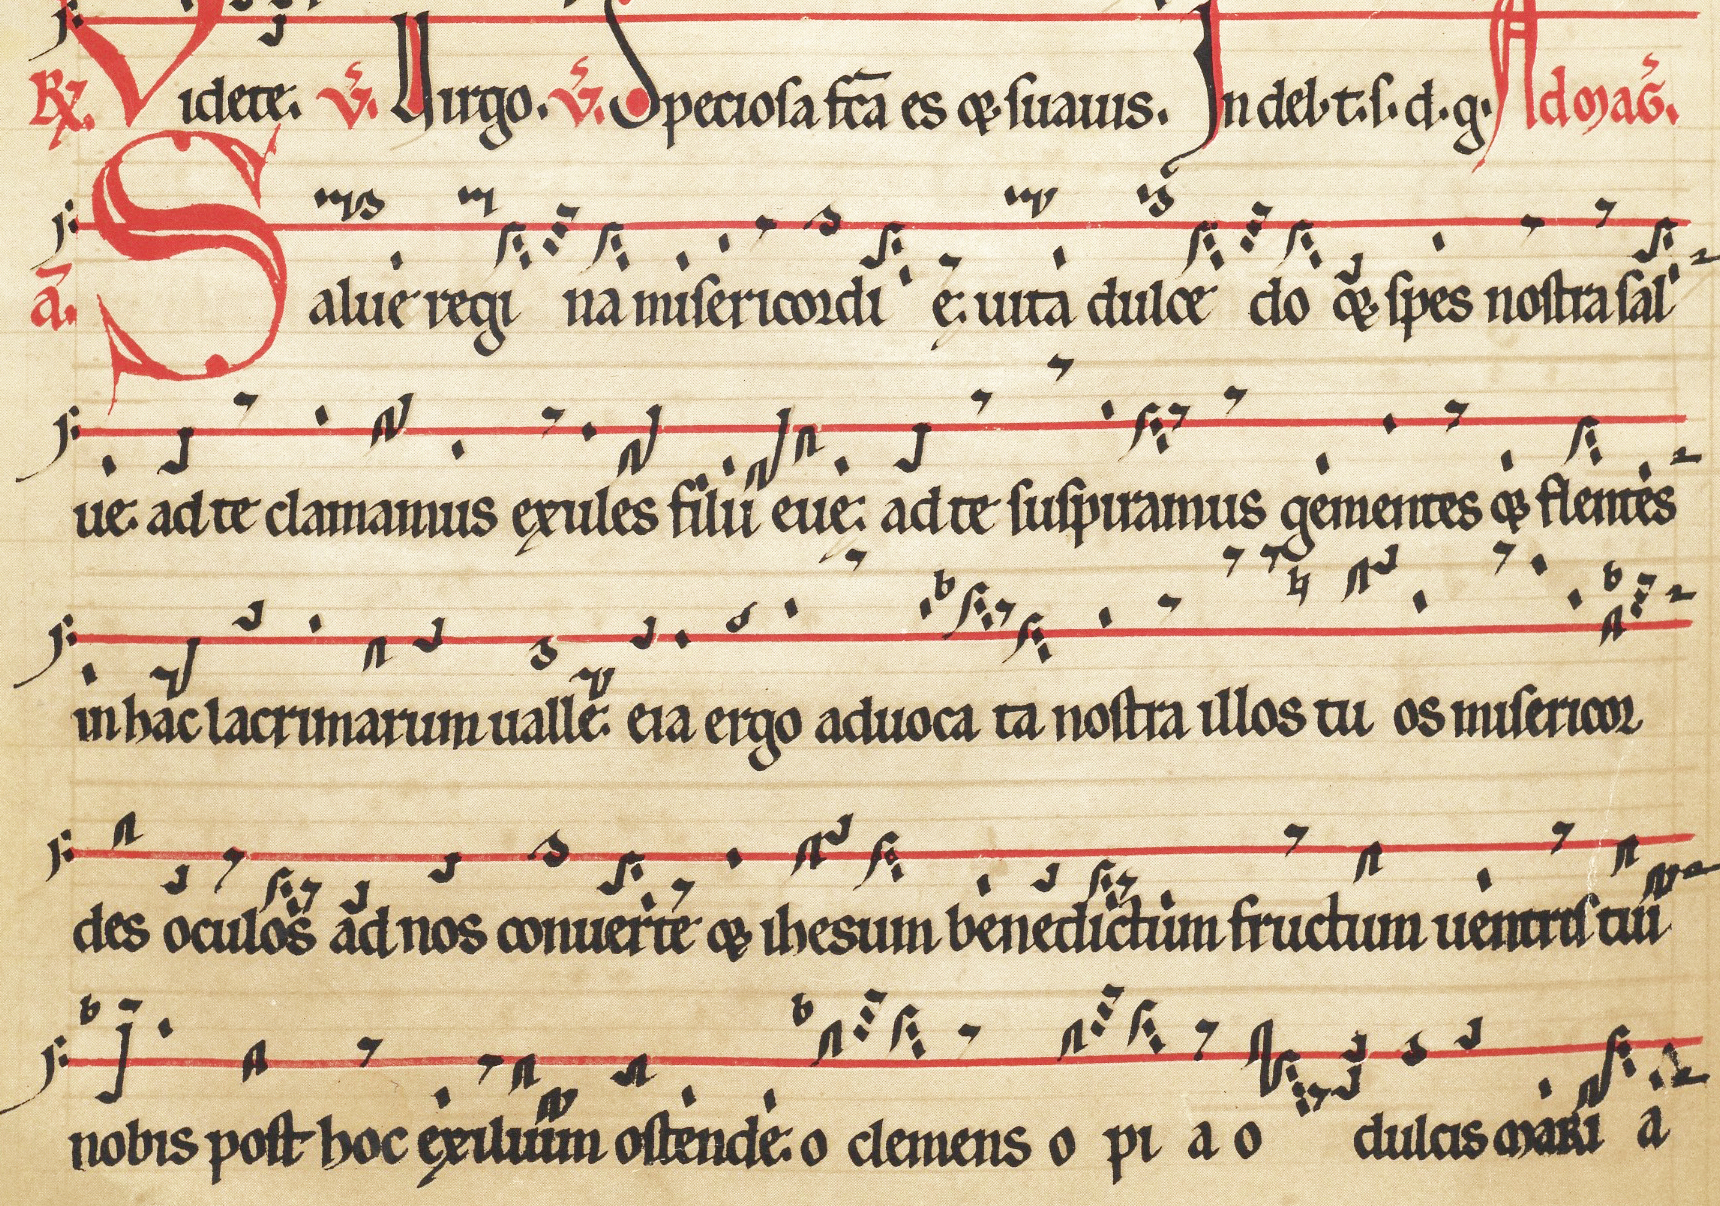 R̷. Videte. v̄. Uirgo. v̄. Speciosa fc̄a es q̄ suauis. In deb. t. s. d. g. Ad mag̃.
ā. Salue regi na misericordi e. uita dulce do q̄ spes nostra sal
ue. ad te clamamus exules filii eue. ad te suspiramus gementes q̄ flentes
in hac lacrimarum ualle. eia ergo aduoca ta nostra illos tu os misericor
des oculos ad nos conuerte q̄ ihesum benedictum fructum uentris tui
nobis post hoc exilium ostende. o clemens o pi a o dulcis mari a